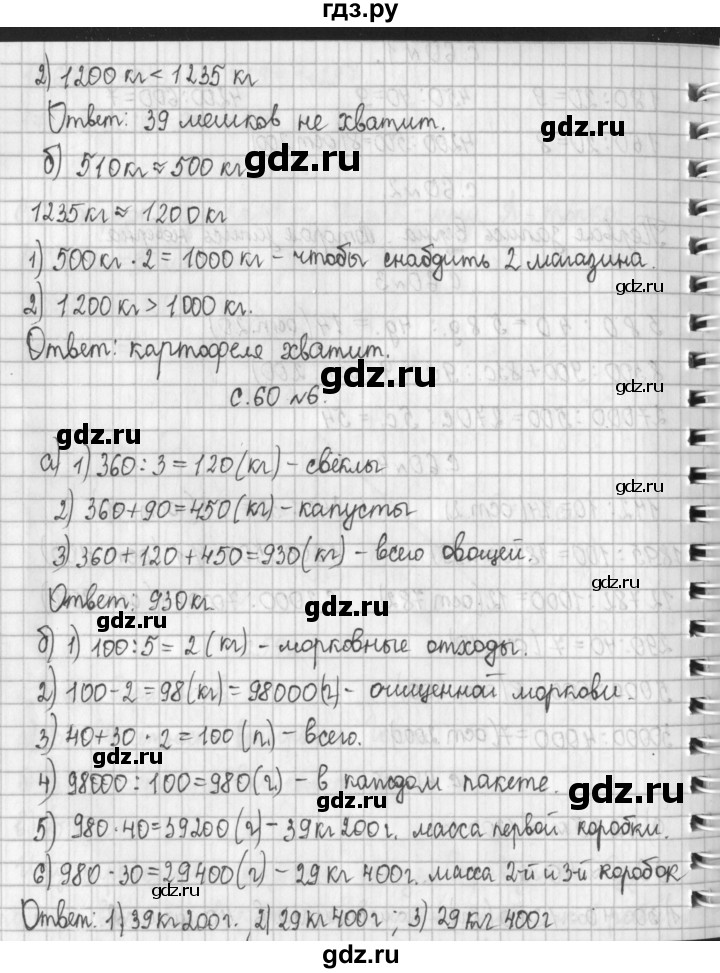 гдз.ру
2) 1200 кг < 1235 кг
Ответ: 39 мешков не хватит.
gdz.ru
б) 510 кг ≈ 500 кг
gdz.ru
1235 кг ≈ 1200 кг
1) 500 кг · 2 = 1000 кг – чтобы снабдить 2 магазина.
gdz.ru
2) 1200 кг > 1000 кг.
Ответ: картофеля хватит.
gdz.ru
gdz.ru
с.60 №6.
gdz.ru
а) 1) 360 : 3 = 120 (кг) – свёклы
gdz.ru
2) 360 + 90 = 450 (кг) – капусты
gdz.ru
3) 360 + 120 + 450 = 930 (кг) – всего овощей.
gdz.ru
Ответ: 930 кг
gdz.ru
gdz.ru
б) 1) 100 : 5 = 2 (кг) – морковные отходы.
2) 100 - 2 = 98 (кг) = 98000 (г) – очищенной моркови.
3) 40 + 30 · 2 = 100 (п.) – всего.
gdz.ru
4) 98000 : 100 = 980 (г) – в каждом пакете.
gdz.ru
gdz.ru
5) 980 · 40 = 39200 (г) – 39 кг 200 г. масса первой коробки.
6) 980 · 30 = 29400 (г) – 29 кг 400 г. масса 2-й и 3-й коробок
gdz.ru
Ответ: 1) 39 кг 200 г. 2) 29 кг 400 г ; 3) 29 кг 400 г
gdz.ru